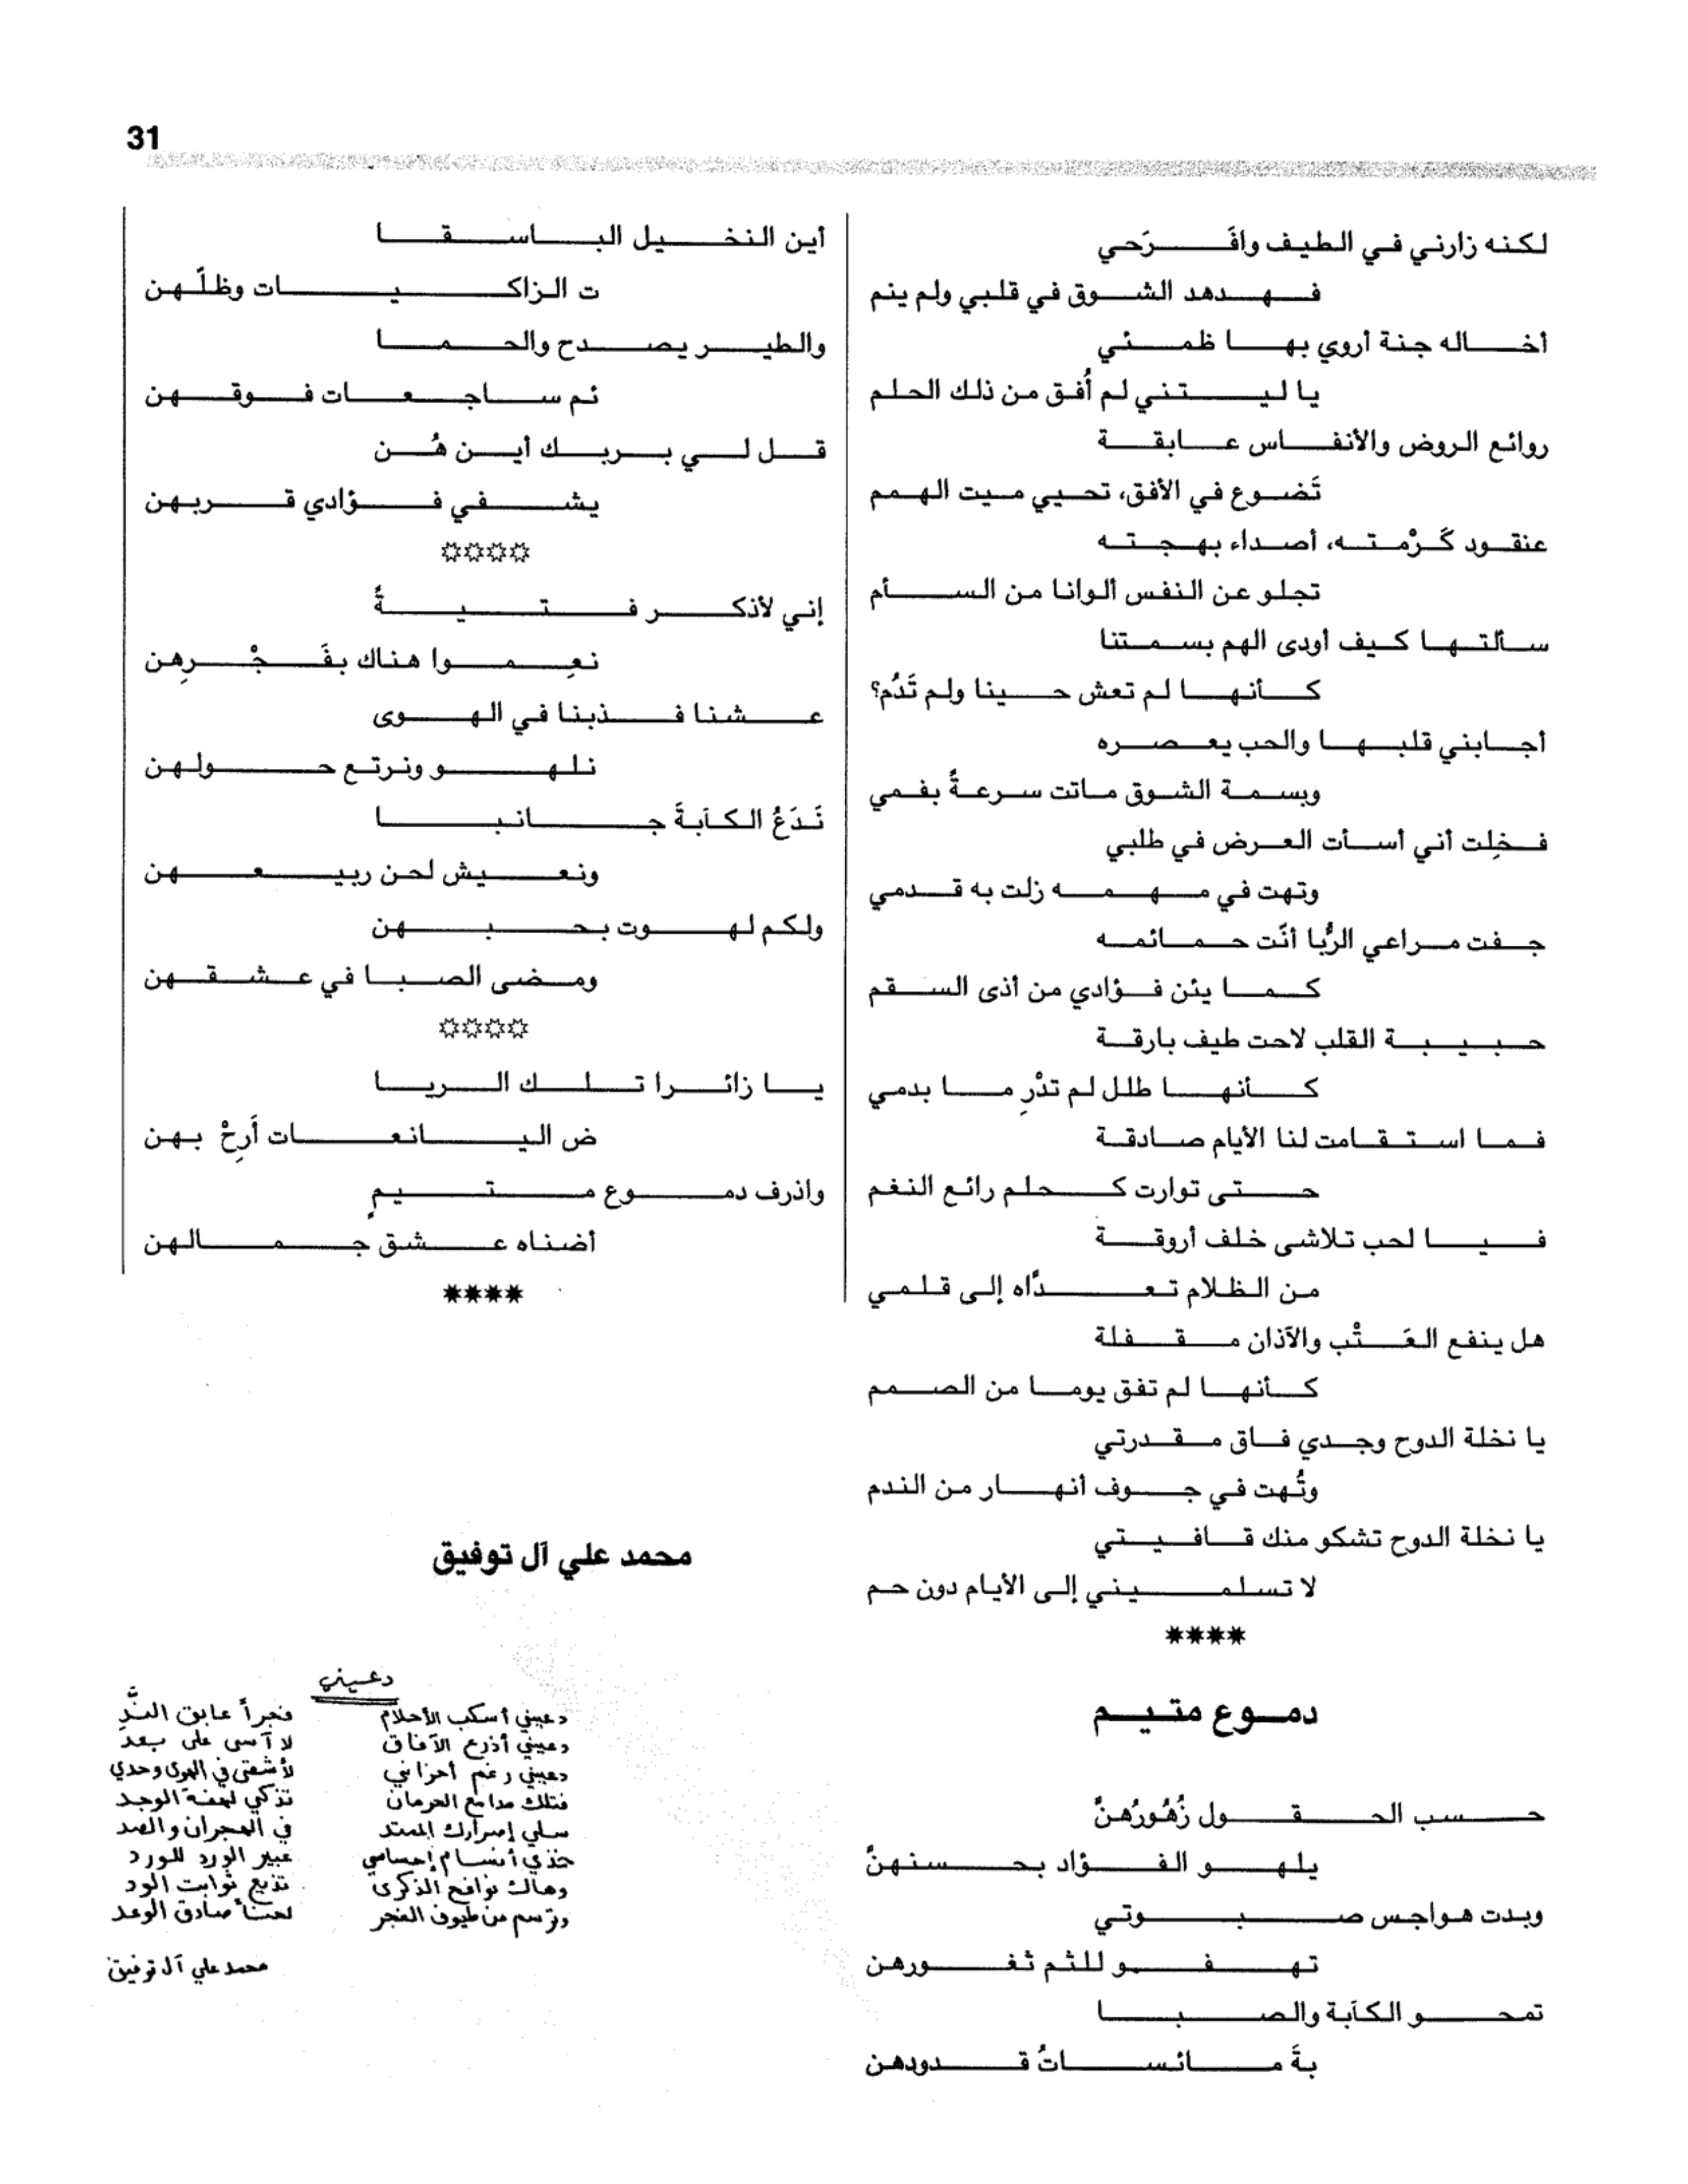 31
لكنه زارني في الطيف وافَرَحي
فهدهد الشوق في قلبي ولم ينم
أخاله جنة أروي بها ظمئي
يا ليتني لم أُفق من ذلك الحلم
روائع الروض والأنفاس عابقة
تَضوع في الأفق، تحيي ميت الهمم
عنقود كَرْمته، أصداء بهجته
تجلو عن النفس ألوانا من السأم
سألتها كيف أودى الهم بسمتنا
كأنها لم تعش حينا ولم تَدُم؟
أجابني قلبها والحب يعصره
وبسمة الشوق ماتت سرعةً بفمي
فخِلت أني أسأت العرض في طلبي
وتهت في مهمه زلت به قدمي
جفت مراعي الرُّبا أنّت حمائمه
كما يئن فؤادي من أذى السقم
حبيبة القلب لاحت طيف بارقة
كأنها طلل لم تدْرِ ما بدمي
فما استقامت لنا الأيام صادقة
حتى توارت كحلم رائع النغم
فيا لحب تلاشى خلف أروقة
من الظلام تعدّاه إلى قلمي
هل ينفع العَتْب والآذان مقفلة
كأنها لم تفق يوما من الصمم
يا نخلة الدوح وجدي فاق مقدرتي
وتُهت في جوف أنهار من الندم
يا نخلة الدوح تشكو منك قافيتي
لا تسلميني إلى الأيام دون حم
****
دموع متيم
حسب الحقول زُهُورُهُنّ
يلهو الفؤاد بحسنهنّ
وبدت هواجس صبوتي
تهفو للثم ثغورهن
تمحو الكآبة والصبا
بةَ مائساتُ قدودهن
أين النخيل الباسقا
ت الزاكيات وظلّهن
والطير يصدح والحما
ئم ساجعات فوقهن
قل لي بربك أين هُن
يشفي فؤادي قربهن
☼☼☼☼
إني لأذكر فتيةً
نعِموا هناك بفَجْرِهِن
عشنا فذبنا في الهوى
نلهو ونرتع حولهن
نَدَعُ الكآبةَ جانبا
ونعيش لحن ربيعهن
ولكم لهوت بحبهن
ومضى الصبا في عشقهن
☼☼☼☼
يا زائرا تلك الريا
ض اليانعات أَرِحْ بهن
واذرف دموع متيمٍ
أضناه عشق جمالهن
****
محمد علي آل توفيق
دعيني
دعيني أسكب الأحلام فجراً عابق النَّدِ
دعيني أذرع الآفاق لا آسى على بعد
دعيني رغم أحزاني لأشقى في الهوى وحدي
فتلك مدامع الحرمان تذكي لهفة الوجد
سلي إصرارك الممتد في الهجران والصد
خذي أنسام إحساسي عبير الورد للورد
وهاك نوافح الذكرى تذيع ثوابت الود
وترسم من طيوف الفجر لحناً صادق الوعد
محمد علي آل توفيق